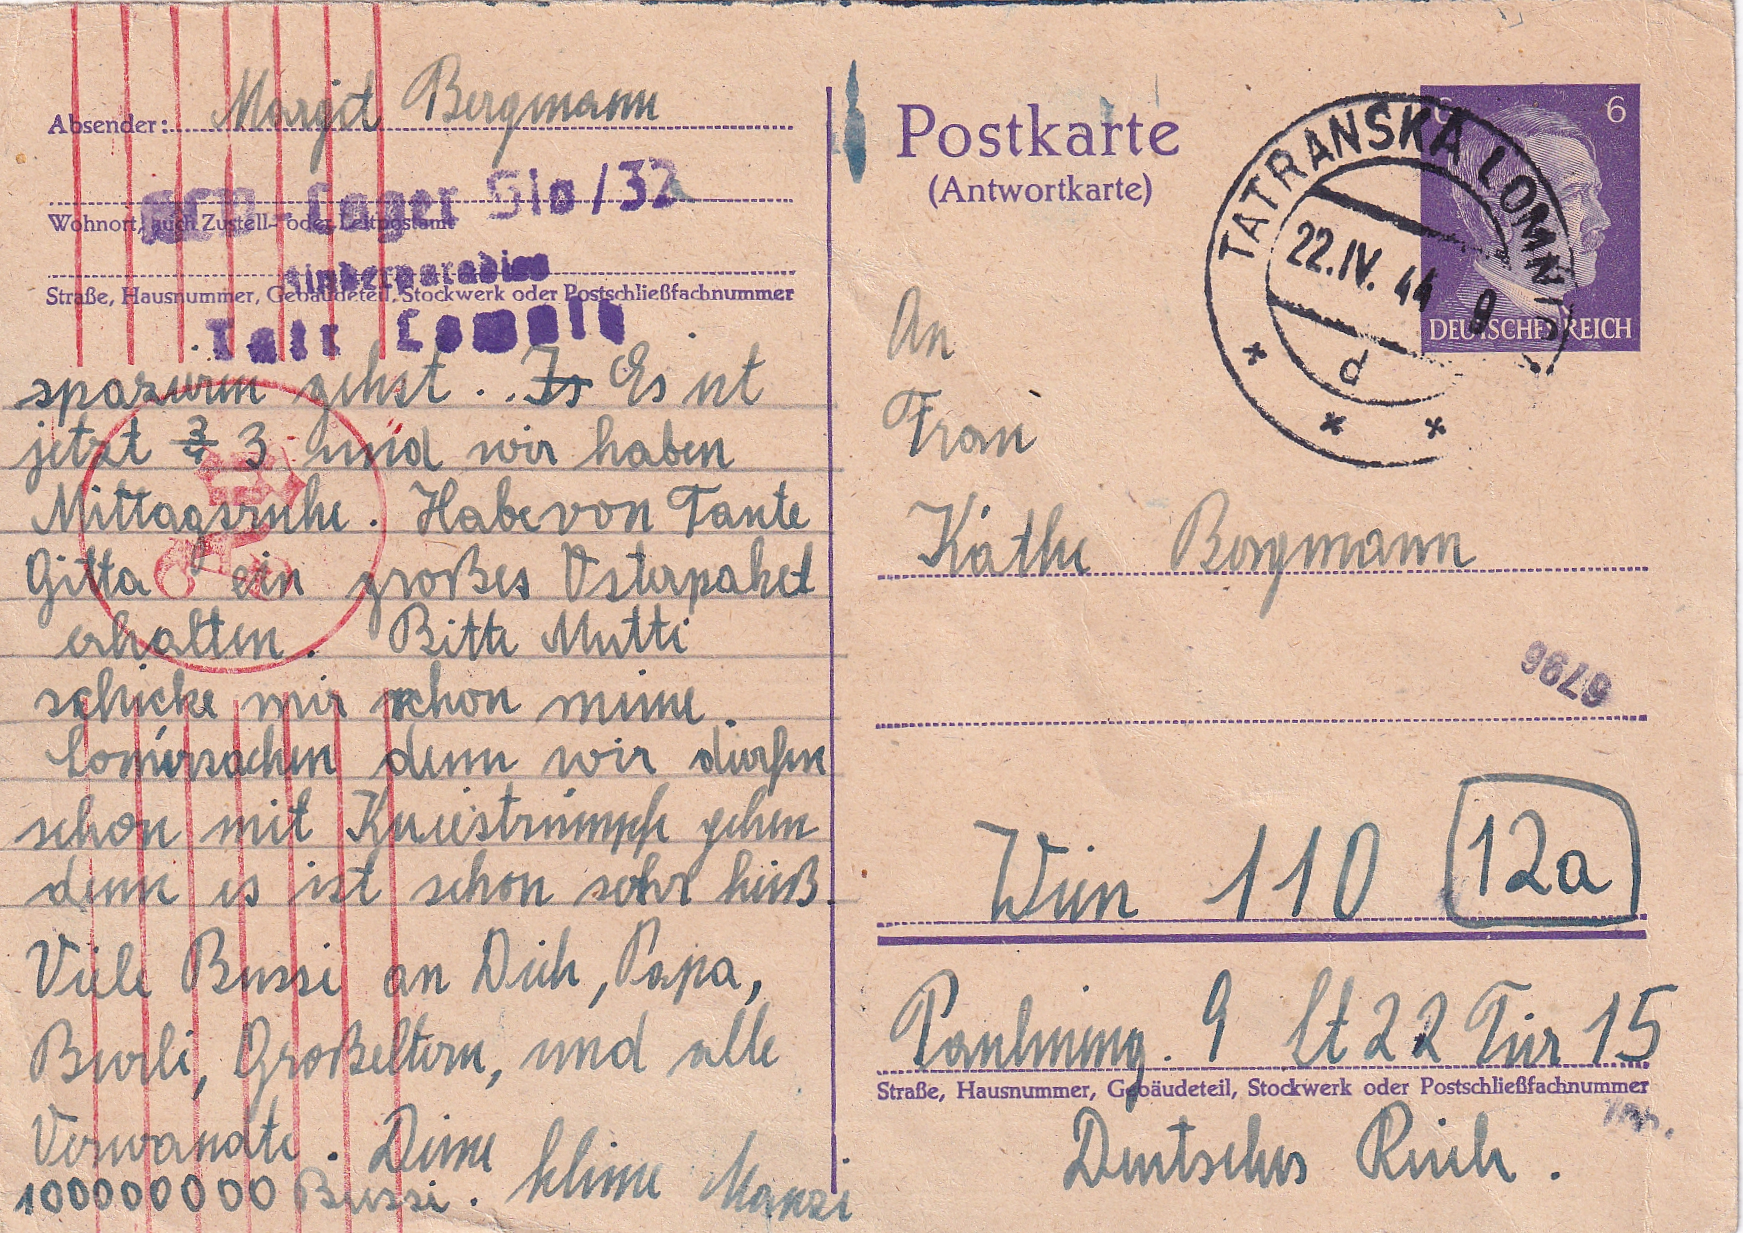 Absender: Margit Bergmann
Lager Slo/32
Wohnort, auch Zustell- oder Leitpostamt
Kinderparadies
Straße, Hausnummer, Gebäudeteil, Stockwerk oder Postschließfachnummer
Tatr Lomnitz
spazuren gehst. Is Es ist
jetzt 3/4 3 und wir haben
Mittagsruhe. Habe von Tante
Gitta ein großes Osterpaket
erhalten. Bitte Mutti
schicke mir schon meine
Somersachen denn wir dürfen
schon mit Kniestrümpfe gehen
denn es ist schon sehr heiß.
Viele Bussi an Dich, Papa,
Burli, Großeltern, und alle
Verwandte. Deine
1000000000 Bussi. kleine Manzi
Postkarte
(Antwortkarte)
6 6
DEUTSCHES REICH
TATRANSKÁ LOMNICA
22.IV.44 9
d
An
Frau
Käthe Bergmann
9679
Wien 110 12a
9 St 22 Tür 15
Straße, Hausnummer, Gebäudeteil, Stockwerk oder Postschließfachnummer
Deutsches Reich.